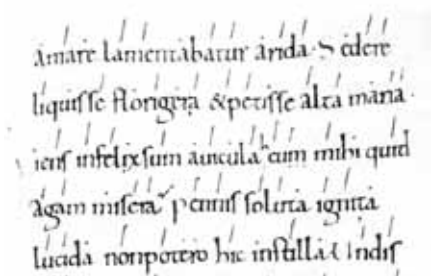 amare lamentabatur arida· Sedere
liquisse florigera & petisse alta maria·
iens infelix sum auicula cum mihi quid
agam misera pennis soluta ignita
lucida non potero hic instilla Undis